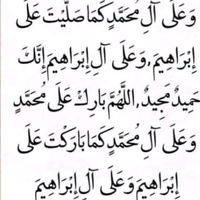 وَعَلَى آلِ مُحَمَّدٍ كَمَا صَلَّيْتَ عَلَى
إِبْرَاهِيمَ, وَعَلَى آلِ إِبْرَاهِيمَ إِنَّكَ
حَمِيدٌ مَجِيدٌ, اللَّهُمَّ بَارِكْ عَلَى مُحَمَّدٍ
وَعَلَى آلِ مُحَمَّدٍ كَمَا بَارَكْتَ عَلَى
إِبْرَاهِيمَ وَعَلَى آلِ إِبْرَاهِيمَ